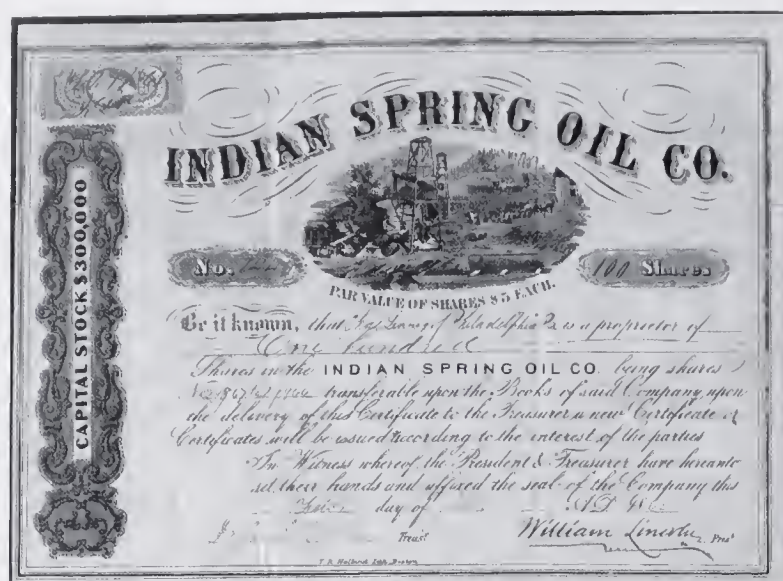 INDIAN SPRING OIL CO.
CAPITAL STOCK $300,000
No.
100 Shares.
PAR VALUE OF SHARES $5 EACH.
Be it known, that of Philadelphia Pa is a proprietor of
One hundred
Shares in the INDIAN SPRING OIL CO. being shares
transferable upon the Books of said Company, upon
the delivery of this Certificate to the Treasurer a new Certificate or
Certificates will be issued according to the interest of the parties
In Witness whereof, the President & Treasurer have hereunto
set their hands and affixed the seal of the Company this
day of A.D. 186
Treasr.
William Lincoln Prest
Lith. Boston